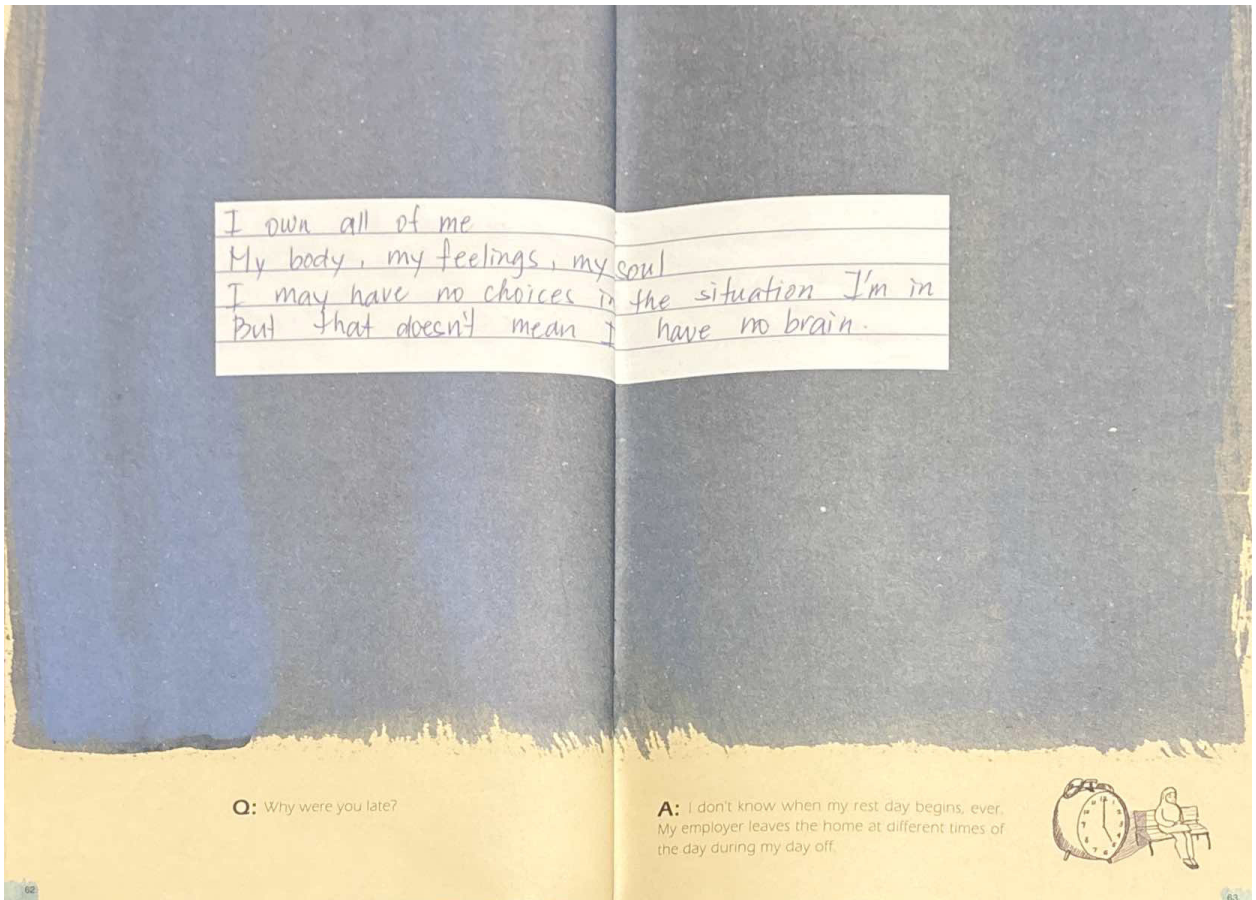 I own all of me
My body, my feelings, my soul
I may have no choices in the situation I'm in
But that doesn't mean I have no brain.
Q: Why were you late?
A: I don't know when my rest day begins, ever.
My employer leaves the home at different times of
the day during my day off.
62
63